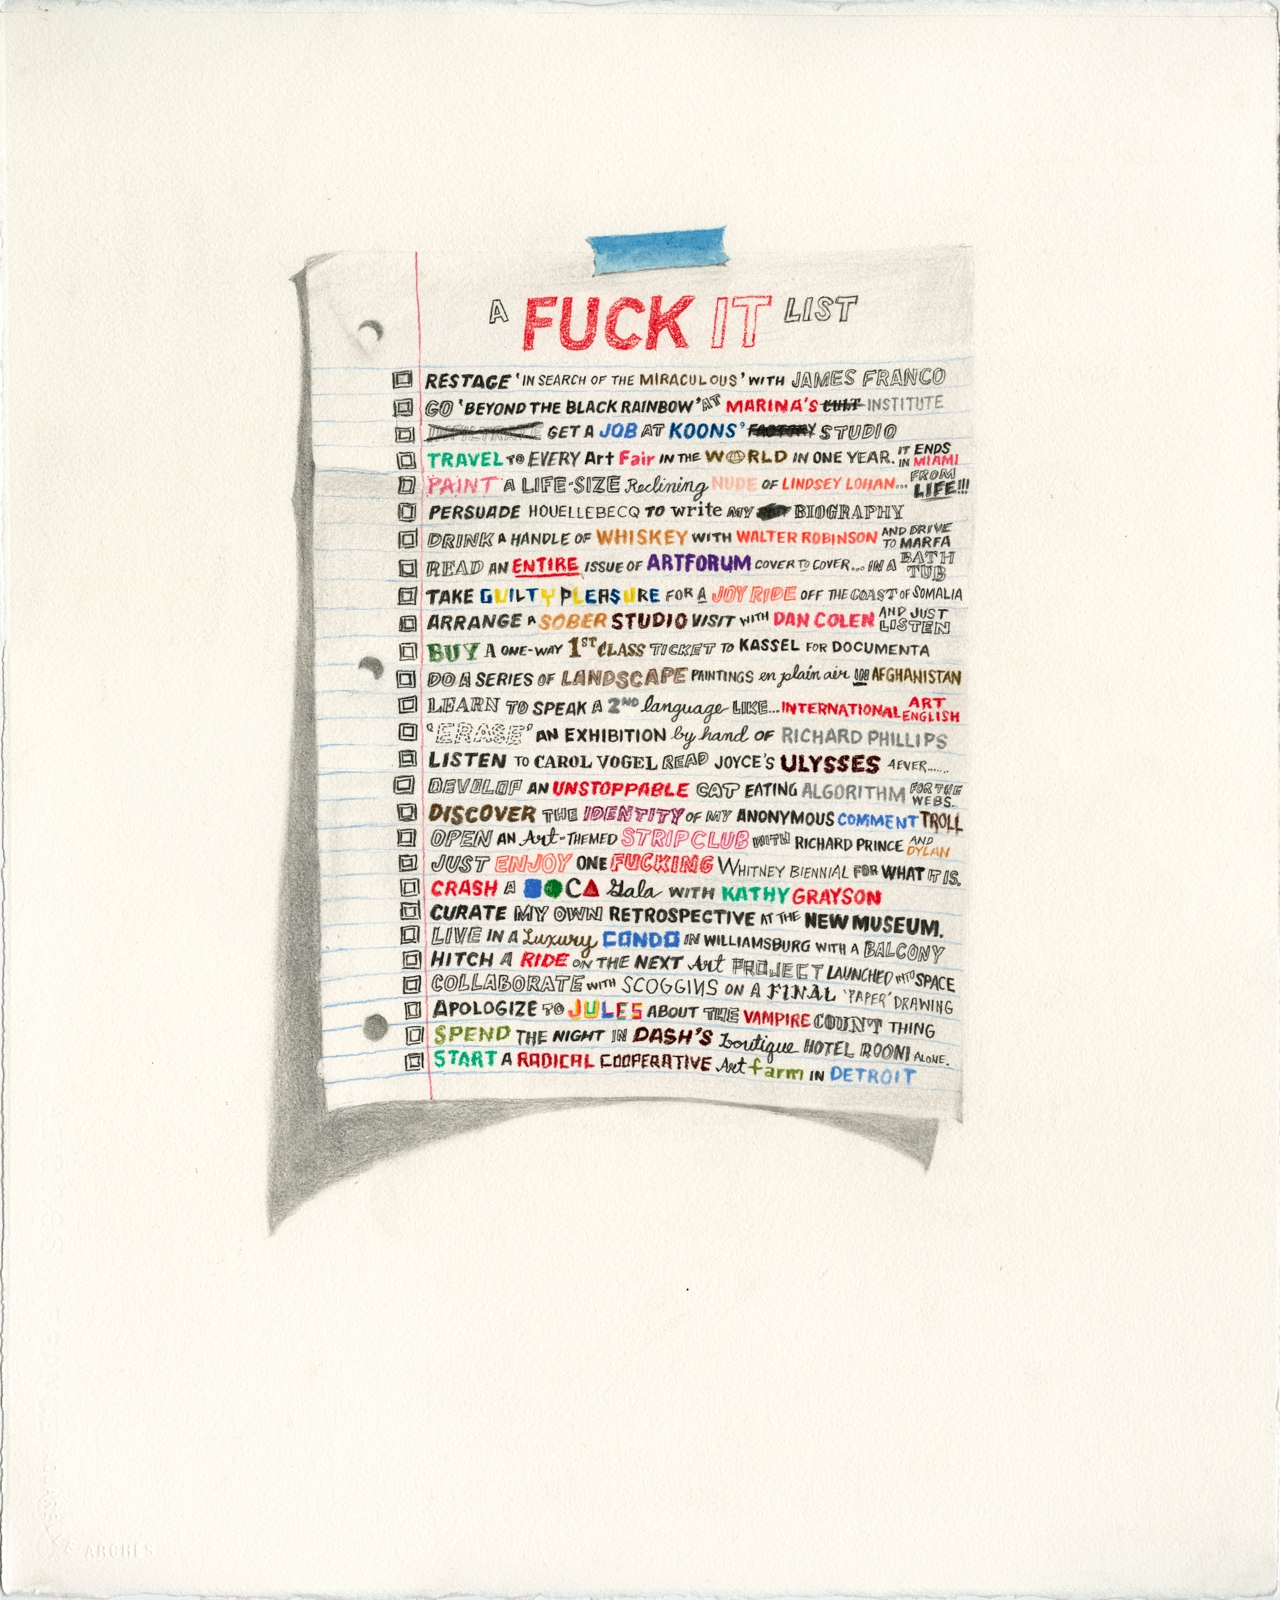 A FUCK IT LIST
RESTAGE 'IN SEARCH OF THE MIRACULOUS' WITH JAMES FRANCO
GO 'BEYOND THE BLACK RAINBOW' AT MARINA'S CULT INSTITUTE
INFILTRATE GET A JOB AT KOONS' FACTORY STUDIO
TRAVEL TO EVERY Art Fair IN THE WORLD IN ONE YEAR. IT ENDS IN MIAMI
PAINT A LIFE-SIZE Reclining NUDE OF LINDSEY LOHAN... FROM LIFE!!!
PERSUADE HOUELLEBECQ TO write MY BIOGRAPHY
DRINK A HANDLE OF WHISKEY WITH WALTER ROBINSON AND DRIVE TO MARFA
READ AN ENTIRE ISSUE OF ARTFORUM COVER TO COVER... IN A BATH TUB
TAKE GUILTY PLEASURE FOR A JOY RIDE OFF THE COAST OF SOMALIA
ARRANGE A SOBER STUDIO VISIT WITH DAN COLEN AND JUST LISTEN
BUY A ONE-WAY 1ST CLASS TICKET TO KASSEL FOR DOCUMENTA
DO A SERIES OF LANDSCAPE PAINTINGS en plain air IN AFGHANISTAN
LEARN TO SPEAK A 2ND language LIKE... INTERNATIONAL ART ENGLISH
'ERASE' AN EXHIBITION by hand OF RICHARD PHILLIPS
LISTEN TO CAROL VOGEL READ JOYCE'S ULYSSES 4EVER......
DEVELOP AN UNSTOPPABLE CAT EATING ALGORITHM FOR THE WEBS..
DISCOVER THE IDENTITY OF MY ANONYMOUS COMMENT TROLL
OPEN AN Art-THEMED STRIP CLUB WITH RICHARD PRINCE AND DYLAN
JUST ENJOY ONE FUCKING WHITNEY BIENNIAL FOR WHAT IT IS.
CRASH A MOCA Gala WITH KATHY GRAYSON
CURATE MY OWN RETROSPECTIVE AT THE NEW MUSEUM.
LIVE IN A Luxury CONDO IN WILLIAMSBURG WITH A BALCONY
HITCH A RIDE ON THE NEXT Art PROJECT LAUNCHED INTO SPACE
COLLABORATE WITH SCOGGINS ON A FINAL 'PAPER' DRAWING
APOLOGIZE TO JULES ABOUT THE VAMPIRE COUNT THING
SPEND THE NIGHT IN DASH'S boutique HOTEL ROOM ALONE.
START A RADICAL COOPERATIVE Art farm IN DETROIT
ARCHES